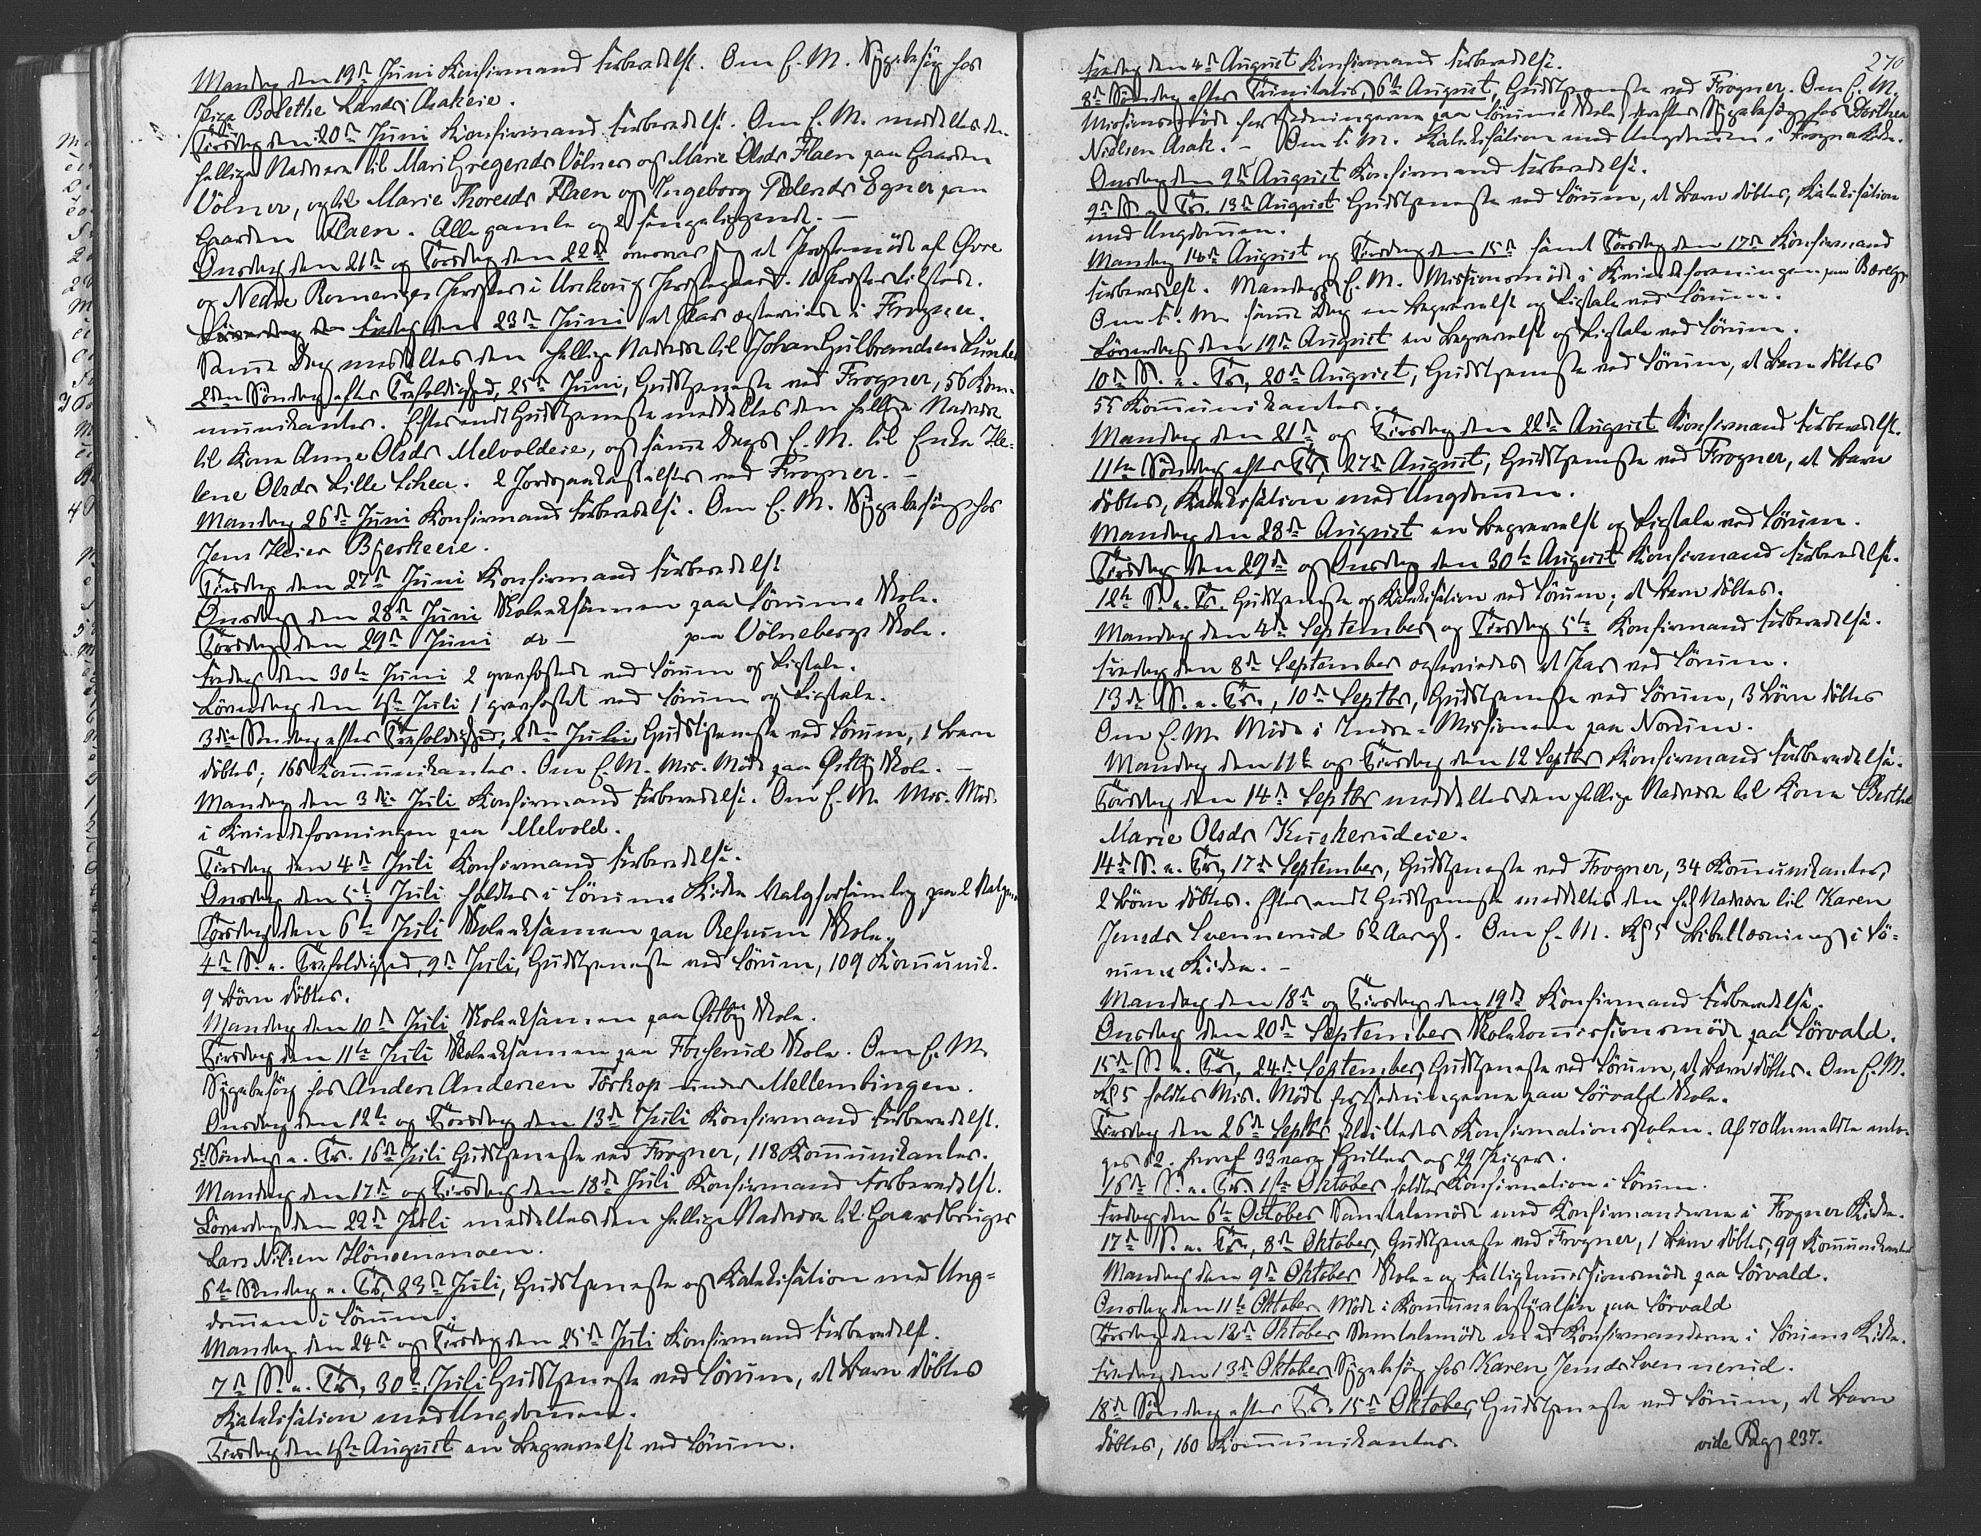 Mandag den 19de Juni Konfirmand Forberedelse. Om E. M. Sygebesög hos
Pige Bolethe Larsdr Asakeie.
Tirsdag den 20de Juni Konfirmand Forberedelse. Om E. M. meddeltes den
hellige Nadvere til Mari Gregersdr Völner og Marie Olsdr Flaen paa Gaarden
Völner, og til Marie Thoresdr Flaen og Ingeborg Pedersdr Egner paa
Gaarden Flaen. Alle gamle og sengeliggende. —
Onsdag den 21de og Torsdag den 22de overvar jeg et Prestemöde af Övre
og Nedre Romeriges Prester i Urskoug Prestegaard. 10 Prester tilstede.
Fredag den 23de Juni et Par ægteviet i Frogner.
Samme Dag meddeltes den hellige Nadvere til Johan Gulbrandsen
2den Söndag efter Trefoldighed, 25de Juni, Gudstjeneste ved Frogner, 56 Kom-
munikanter. Efter endt Gudstjeneste meddeltes den hellige Nadvere
til Kone Anne Olsdr Melvoldeie, og samme Dags E. M. til Enke He-
lene Olsdr Lille Lihea. 2 Jordpaakastelser ved Frogner. —
Mandag 26de Juni Konfirmand Forberedelse. Om E. M. Sygebesög hos
Jens Bjerkeeie.
Tirsdag den 27de Juni Konfirmand Forberedelse
Onsdag den 28de Juni Skoleeksamen paa Sörums Skole.
Torsdag den 29de Juni do — paa Völnebergs Skole.
Fredag den 30te Juni 2 gravfæstede ved Sörum og Ligtale.
Löverdag den 1ste Juli 1 gravfæstet ved Sörum og Ligtale.
3die Söndag efter Trefoldighed, 2den Juli, Gudstjeneste ved Sörum, 1 Barn
döbtes; 166 Kommunikanter. Om E. M. Mis. Möde paa Östby Skole. —
Mandag den 3die Juli Konfirmand Forberedelse. Om E. M. Mis. Möde
i Kvindeforeningen paa Melvold.
Tirsdag den 4de Juli Konfirmand Forberedelse.
Onsdag den 5te Juli holdtes i Sörums Kirke Valgforsamling paa 2 Valgmænd
Torsdag den 6te Juli Skoleeksamen paa Refsum Skole.
4de S. e. Trefoldighed, 9de Juli, Gudstjeneste ved Sörum, 109 Kommunik.
9 Börn döbtes.
Mandag den 10de Juli Skoleeksamen paa Östby Skole.
Tirsdag den 11te Juli Skoleeksamen paa Fosserud Skole. Om E. M.
Sygebesög hos Anders Andersen Törkop under Mellembingen.
Onsdag den 12te og Torsdag den 13de Juli Konfirmand Forberedelse.
5te Söndag e. Tr. 16de Juli Gudstjeneste ved Frogner, 118 Kommunikanter.
Mandag den 17de og Tirsdag den 18de Juli Konfirmand Forberedelse.
Löverdag den 22de Juli meddeltes den hellige Nadvere til Gaardbruger
Lars Nilsen Hönsenmoen.
6te Söndag e. Tr. 23de Juli, Gudstjeneste og Katekisation med Ung-
dommen i Sörum.
Mandag den 24de og Tirsdag den 25de Juli Konfirmand Forberedelse.
7de S. e. Tr., 30te Juli Gudstjeneste ved Sörum, et Barn döbtes
Katekisation med Ungdommen.
Tirsdag den 1ste August en Begravelse ved Sörum.
270
Fredag den 4de August Konfirmand Forberedelse.
8de Söndag efter Trinitatis, 6te August, Gudstjeneste ved Frogner. Om E. M.
Missionsmöde for Hedningerne paa Sörums Skole, derefter Sygebesög hos Dorthea
Nielsen Asak. — Om F. M. Katekisation med Ungdommen i Frogner Kirke.
Onsdag den 9de August Konfirmand Forberedelse.
9de S. e. Tr. 13de August Gudstjeneste ved Sörum, et Barn döbtes, Katekisation
med Ungdommen.
Mandag 14de August og Tirsdag den 15de samt Torsdag den 17de Konfirmand
Forberedelse. Mandags E. M. Missionsmöde i Kvindeforeningen paa
Om F. M. samme Dag en Begravelse og Ligtale ved Sörum.
Löverdag den 19de August en Begravelse og Ligtale ved Sörum.
10de S. e. Tr., 20de August, Gudstjeneste ved Sörum, et Barn döbtes
55 Kommunikanter.
Mandag den 21de og Tirsdag den 22de August Konfirmand Forberedelse.
11te Söndag efter Tr., 27de August, Gudstjeneste ved Frogner, et Barn
döbtes, Katekisation med Ungdommen.
Mandag den 28de August en Begravelse og Ligtale ved Sörum.
Tirsdag den 29de og Onsdag den 30te August Konfirmand Forberedelse.
12te S. e. Tr. Gudstjeneste og Katekisation ved Sörum; et Barn döbtes.
Mandag den 4de September og Tirsdag 5te Konfirmand Forberedelse.
Fredag den 8de September ægteviedes et Par ved Sörum.
13de S. e. Tr., 10de Septbr, Gudstjeneste ved Sörum, 3 Börn döbtes
Om E. M. Möde i Indre-Missionen paa Nordum.
Mandag den 11te og Tirsdag den 12 Septbr Konfirmand Forberedelse.
Torsdag den 14de Septbr meddeltes den hellige Nadvere til Kone Berthe
Marie Olsdr Kuskerudeie.
14de S. e. Tr. 17de September, Gudstjeneste ved Frogner, 34 Kommunikanter,
2 Börn döbtes. Efter endt Gudstjeneste meddeltes den hel. Nadvere til Karen
Jensdr Svennerud 62 Aar gl. Om E. M. Kl. 5 Bibellæsning i Sö-
rums Kirke. —
Mandag den 18de og Tirsdag den 19de Konfirmand Forberedelse.
Onsdag den 20de September Skolekommissionsmöde paa Sörvald.
15de S. e. Tr., 24de September, Gudstjeneste ved Sörum, et Barn döbtes. Om E. M.
Kl 5 holdtes Mis. Möde for Hedningerne paa Sörvald Skole.
Tirsdag den 26de Septbr sluttedes Konfirmationsskolen. Af 70 Anmeldte anto-
ges 62. hvoraf 33 vare Gutter og 29 Piger.
16de S. e. Tr. 1ste Oktober holdtes Konfirmation i Sörum.
Fredag den 6te October Samtalemöde med Konfirmanderne i Frogner Kirke.
17de S. e. Tr., 8de Oktober, Gudstjeneste ved Frogner, 1 Barn döbtes, 99 Kommunikanter
Mandag den 9de Oktober Skole- og Fattigkommissionsmöde paa Sörvald.
Onsdag den 11te Oktober Möde i Kommunebestyrelsen paa Sörvald
Torsdag den 12de Oktober Samtalemöde med Konfirmanderne i Sörums Kirke.
Fredag den 13de Oktober Sygebesög hos Karen Jensdr Svennerud.
18de Söndag efter Tr. 15de Oktober, Gudstjeneste ved Sörum, et Barn
döbtes, 160 Kommunikanter.
vide Pag 237.